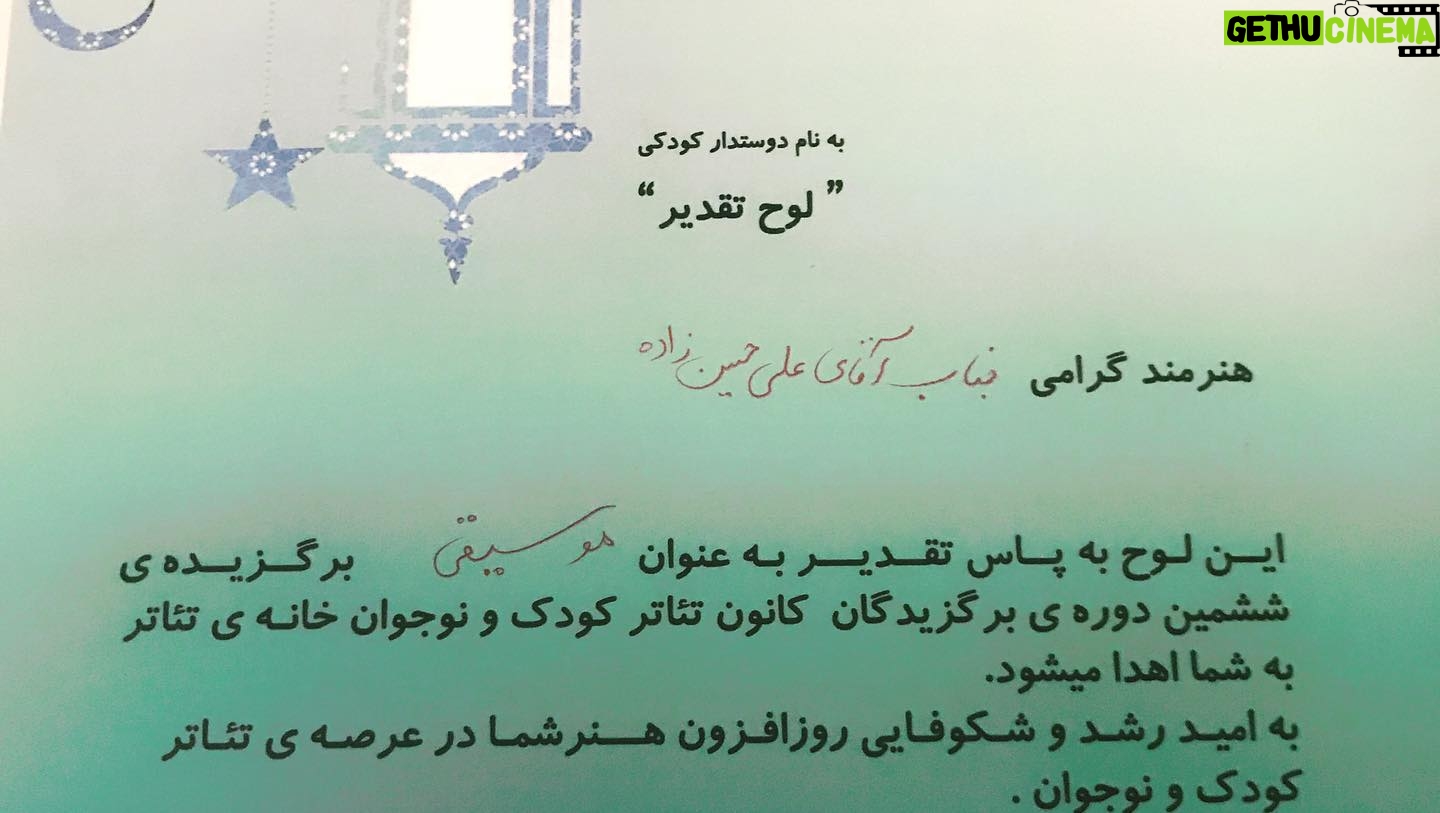 GETHUCINEMA
به نام دوستدار کودکی
” لوح تقدیر “
هنرمند گرامی جناب آقای علی حسین زاده
این لوح به پاس تقدیر به عنوان موسیقی برگزیده ی
ششمین دوره ی برگزیدگان کانون تئاتر کودک و نوجوان خانه ی تئاتر
به شما اهدا میشود.
به امید رشد و شکوفایی روزافزون هنرشما در عرصه ی تئاتر
کودک و نوجوان .